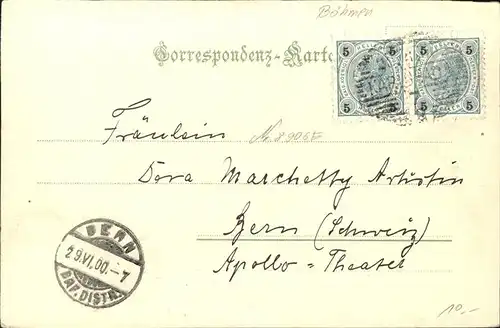 Böhmen
Correspondenz-Karte
5 5
5 5
5 5
5 5
Fräulein
Dora Marchetty Artistin
Bern (Schweiz)
Apollo = Theater
BERN
29.VI.00.-7
BRF. DISTR.
10.-